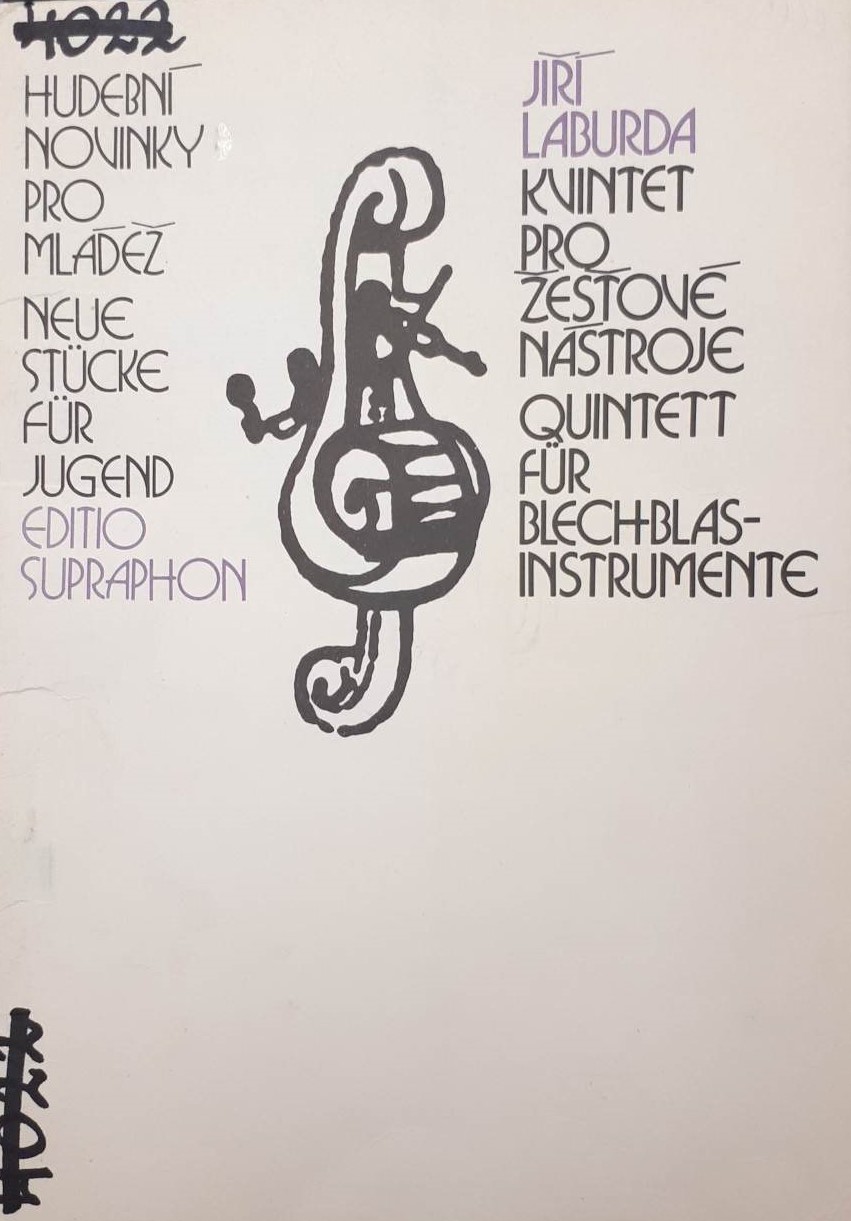 4022
HUDEBNÍ
NOVINKY
PRO
MLÁDEŽ
NEUE
STÜCKE
FÜR
JUGEND
EDITIO
SUPRAPHON
JIŘÍ
LABURDA
KVINTET
PRO
ŽESŤOVÉ
NÁSTROJE
QUINTETT
FÜR
BLECHBLAS-
INSTRUMENTE